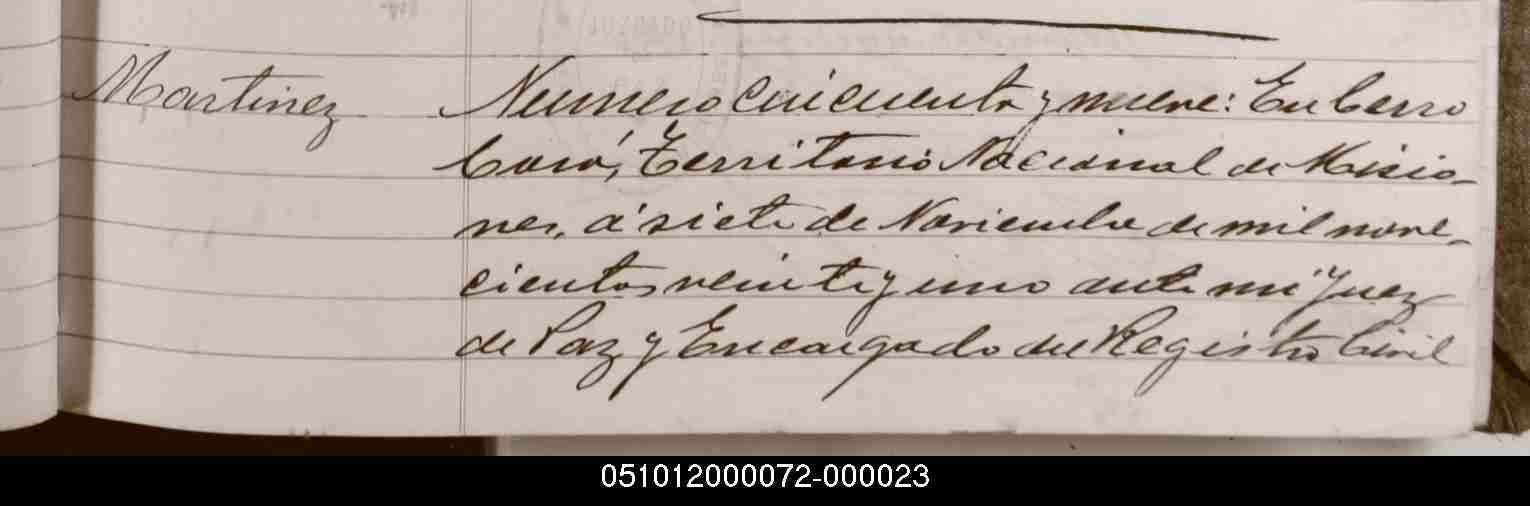 Martinez
Numero cincuenta y nueve: En Cerro
Corá, Territorio Nacional de Misio-
nes, á siete de Noviembre de mil nove-
cientos veinte y uno ante mi Juez
de Paz y Encargado del Registro Civil
051012000072-000023